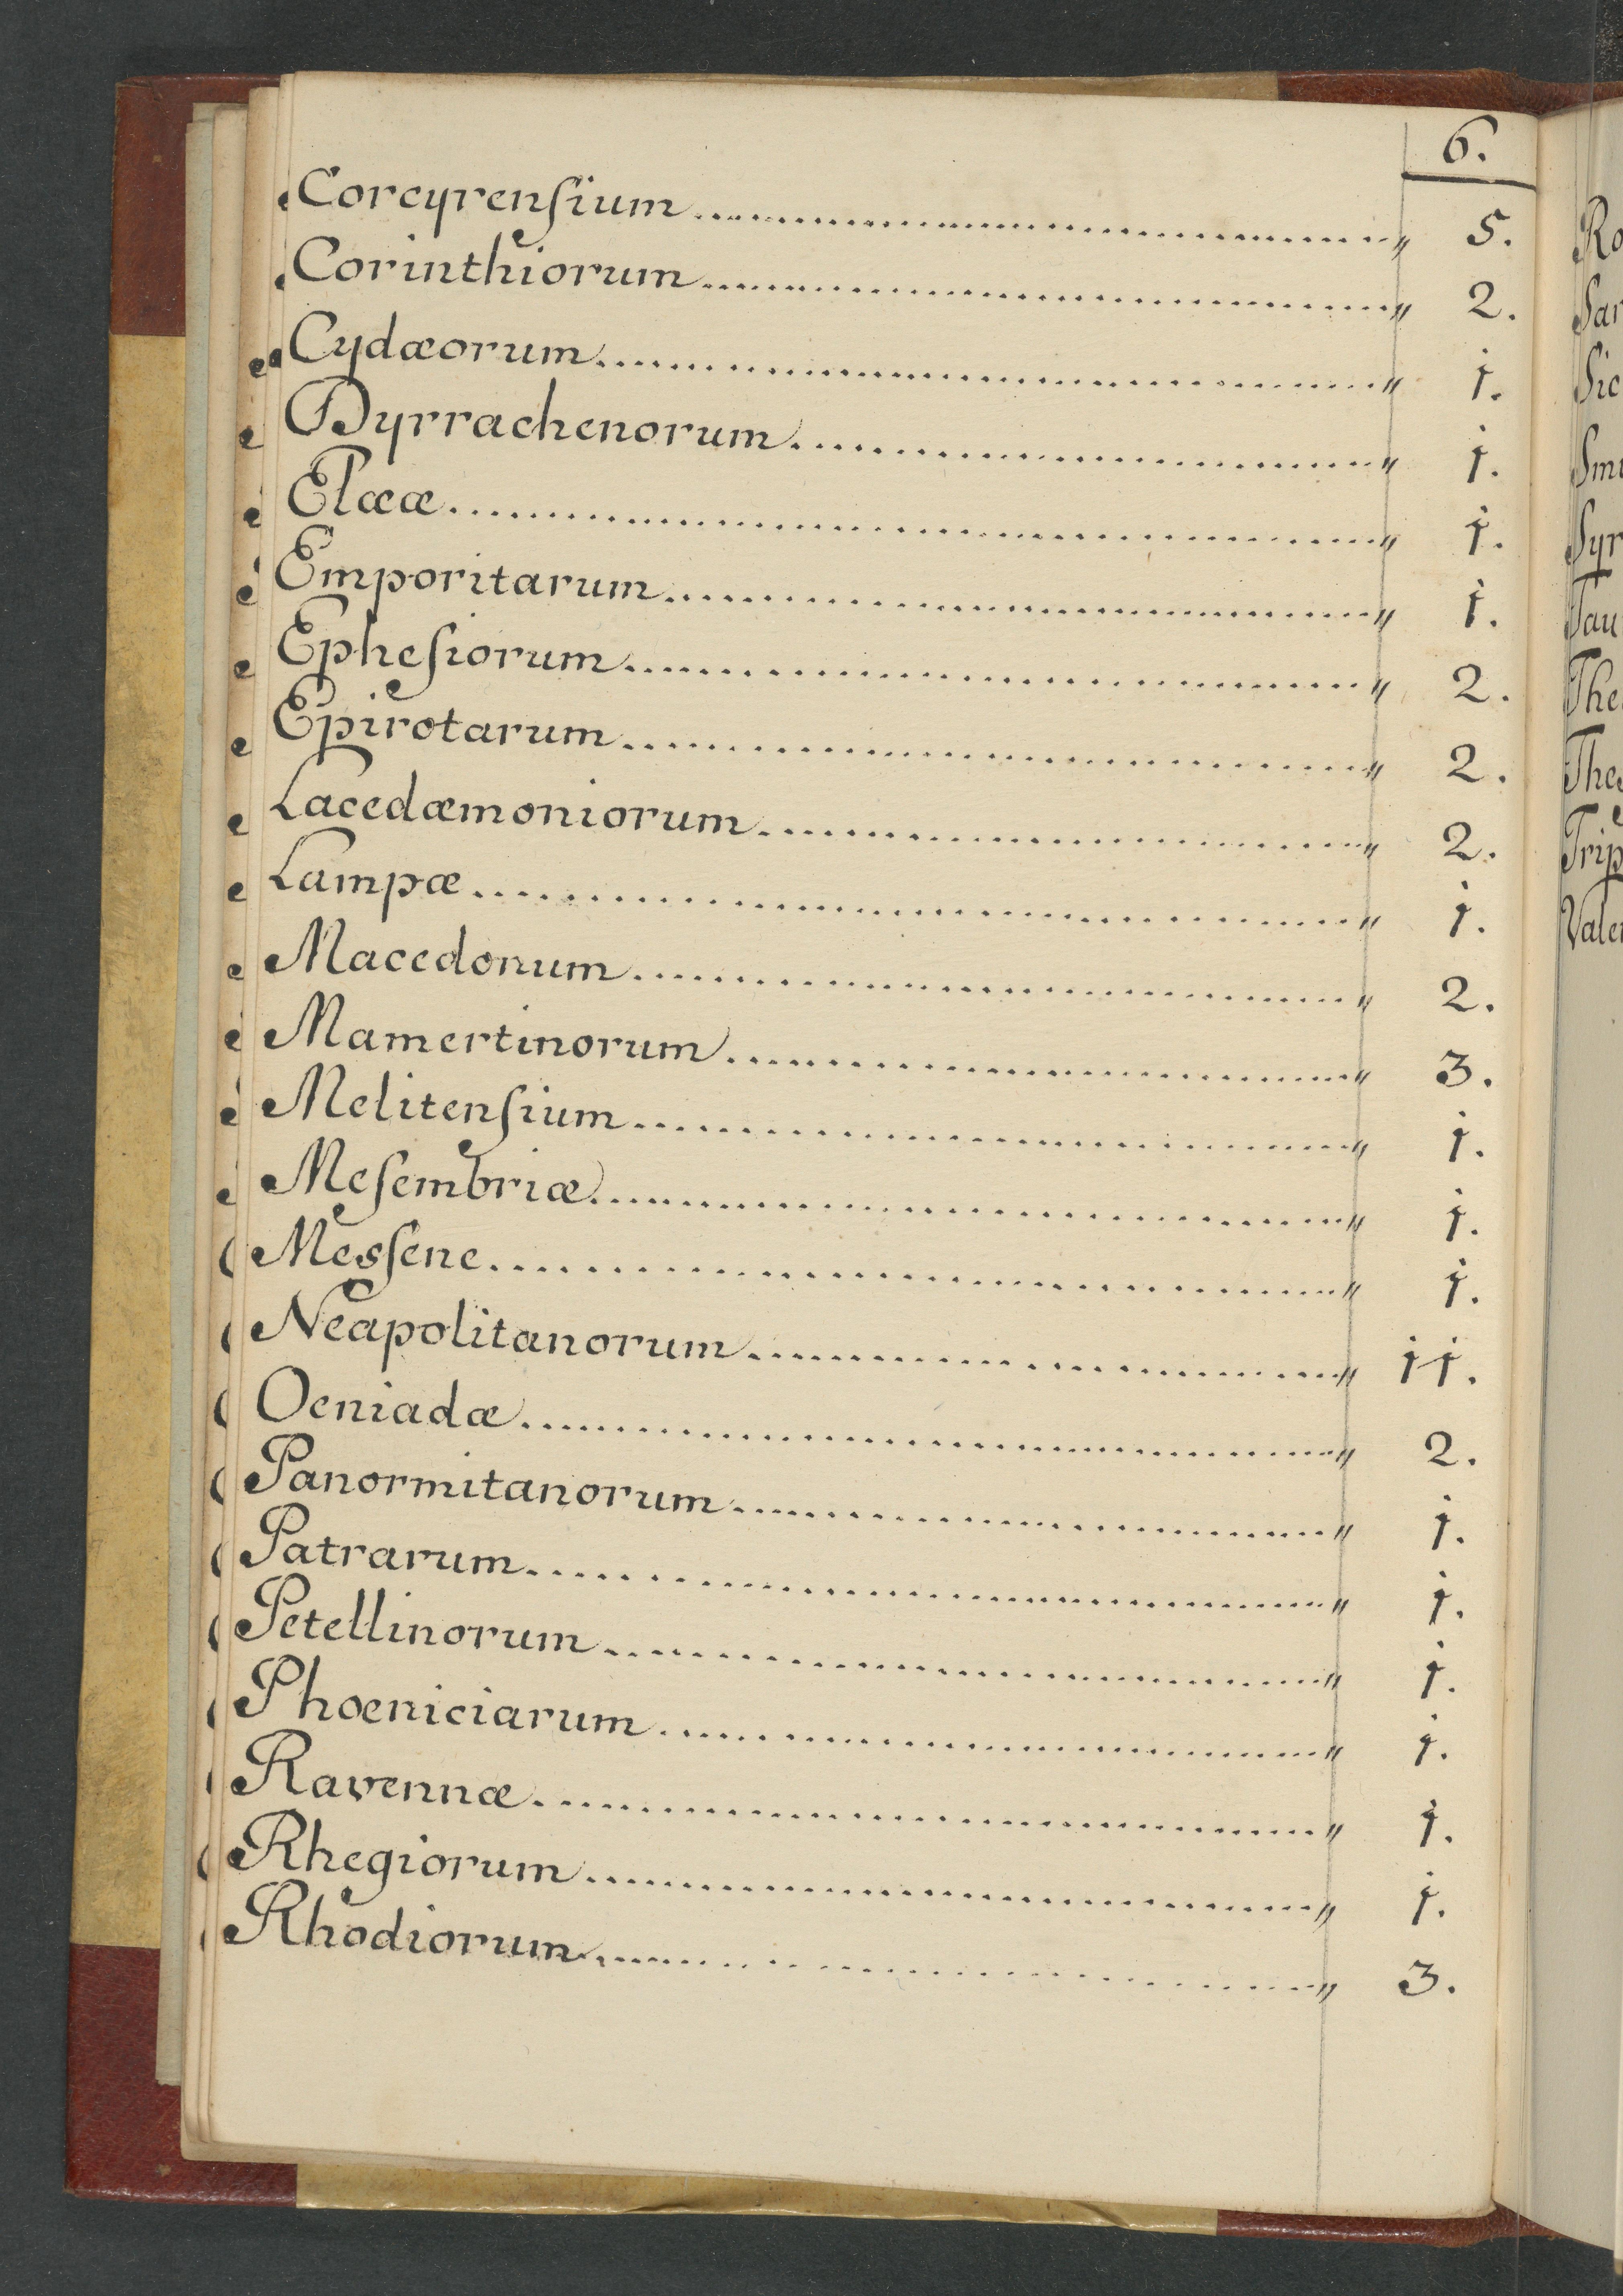 6.
Corcyrenſium ........ " 5.
Corinthiorum ........ " 2.
Cydæorum ........ " 1.
Dyrrachenorum ........ " 1.
Elææ ........ " 1.
Emporitarum ........ " 1.
Epheſiorum ........ " 2.
Epirotarum ........ " 2.
Lacedæmoniorum ........ " 2.
Lampæ ........ " 1.
Macedonum ........ " 2.
Mamertinorum ........ " 3.
Melitenſium ........ " 1.
Meſembriæ ........ " 1.
Mesſene ........ " 1.
Neapolitanorum ........ " 11.
Oeniadæ ........ " 2.
Panormitanorum ........ " 1.
Patrarum ........ " 1.
Petellinorum ........ " 1.
Phœniciarum ........ " 1.
Ravennæ ........ " 1.
Rhegiorum ........ " 1.
Rhodiorum ........ " 3.
Ro
Sar
Sic
Syr
Tau
The
The
Trip
Vale